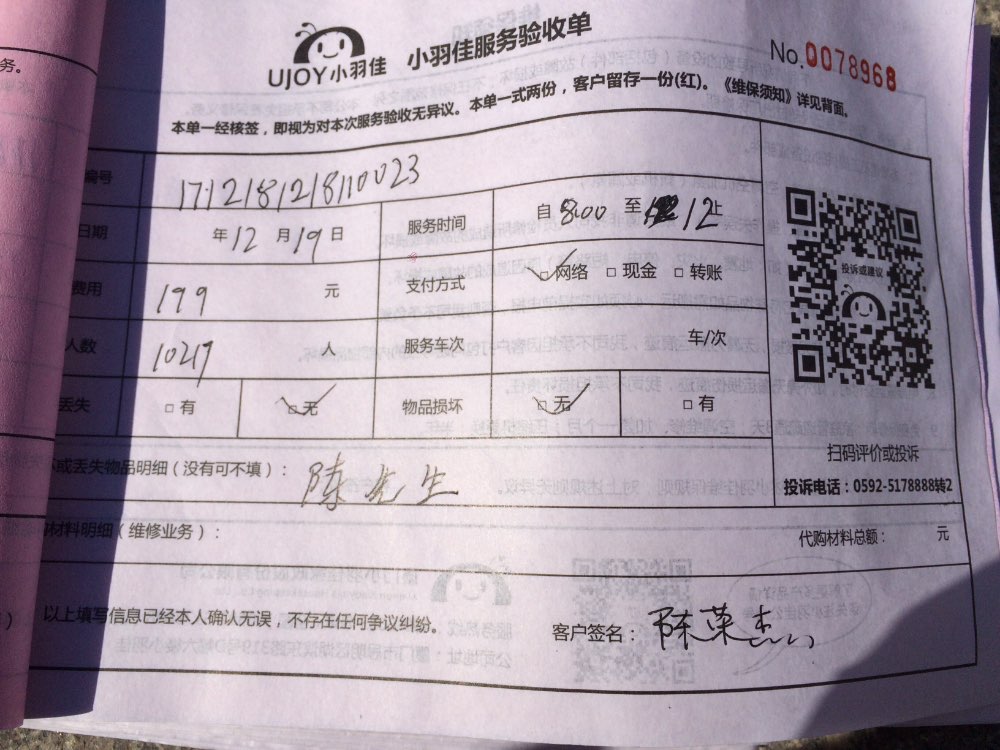 务。
UJOY小羽佳 小羽佳服务验收单 No.0078968
本单一经核签，即视为对本次服务验收无异议。本单一式两份，客户留存一份(红)。《维保须知》详见背面。
编号 1712181218110023
日期 年12月19日 服务时间 自8:00至 12止
费用 199 元 支付方式 网络 □现金 □转账
人数 10217 人 服务车次 车/次
丢失 □有 □无 物品损坏 □无 □有
投诉或建议
扫码评价或投诉
投诉电话：0592-5178888转2
坏或丢失物品明细（没有可不填）： 陈先生
材料明细（维修业务）： 代购材料总额： 元
以上填写信息已经本人确认无误，不存在任何争议纠纷。 客户签名： 陈荣杰